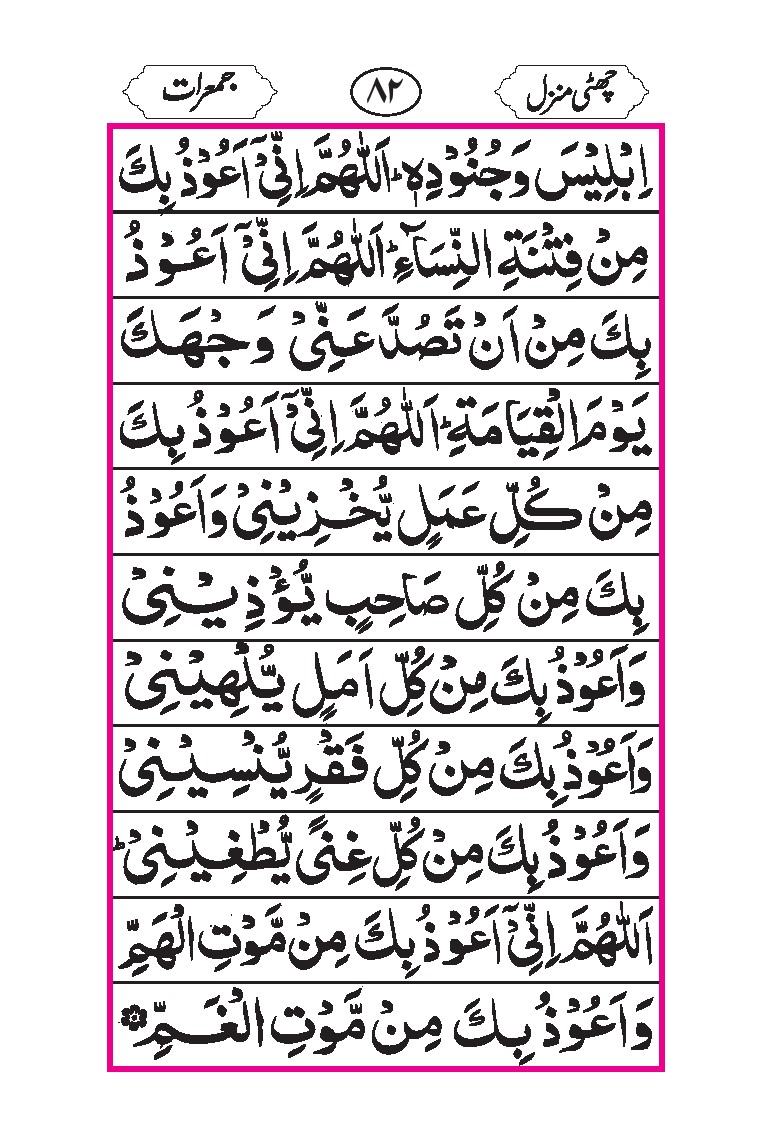 چھٹی منزل
۸۲
جمعرات
اِبْلِیْسَ وَجُنُوْدِهٖ ؕ اَللّٰهُمَّ اِنِّیْۤ اَعُوْذُ بِكَ
مِنْ فِتْنَةِ النِّسَآءِ ؕ اَللّٰهُمَّ اِنِّیْۤ اَعُوْذُ
بِكَ مِنْ اَنْ تَصُدَّ عَنِّیْ وَجْهَكَ
یَوْمَ الْقِیَامَةِ ؕ اَللّٰهُمَّ اِنِّیْۤ اَعُوْذُ بِكَ
مِنْ كُلِّ عَمَلٍ یُّخْزِیْنِیْ وَاَعُوْذُ
بِكَ مِنْ كُلِّ صَاحِبٍ یُّؤْذِیْنِیْ
وَاَعُوْذُ بِكَ مِنْ كُلِّ اَمَلٍ یُّلْهِیْنِیْ
وَاَعُوْذُ بِكَ مِنْ كُلِّ فَقْرٍ یُّنْسِیْنِیْ
وَاَعُوْذُ بِكَ مِنْ كُلِّ غِنًی یُّطْغِیْنِیْ ؕ
اَللّٰهُمَّ اِنِّیْۤ اَعُوْذُ بِكَ مِنْ مَّوْتِ الْهَمِّ
وَاَعُوْذُ بِكَ مِنْ مَّوْتِ الْغَمِّ ۞